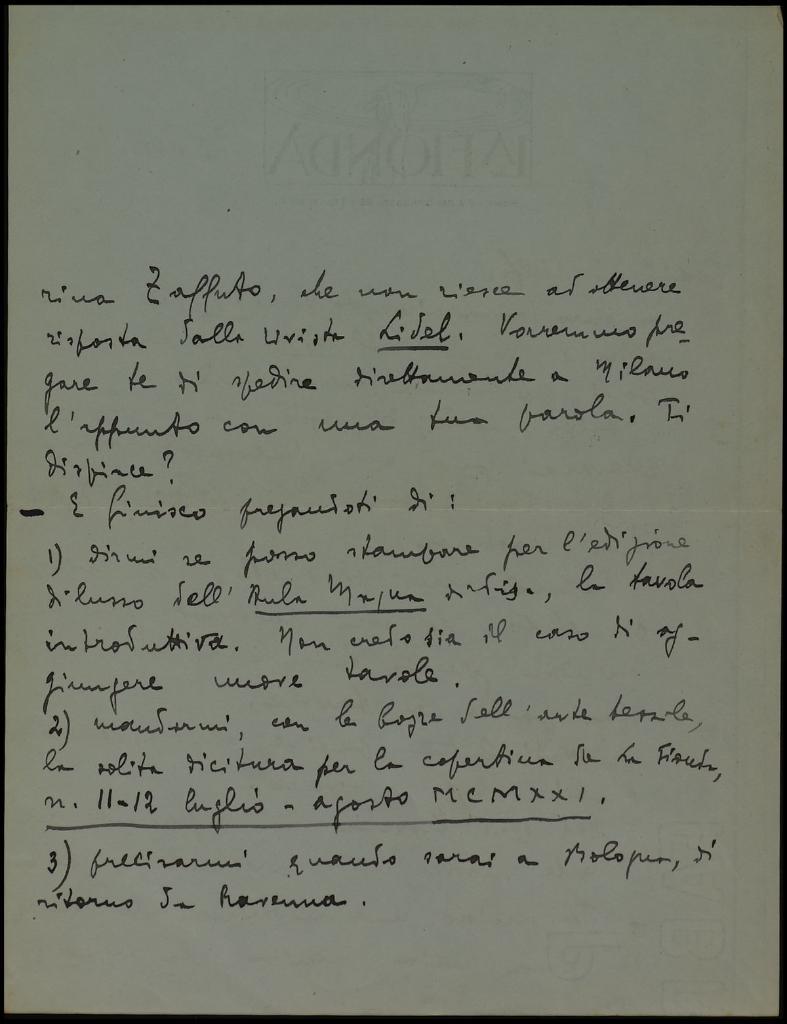 rina Zaffuto, che non riesce ad ottenere
risposta dalla rivista Lidel. Vorremmo pre-
gare te di spedire direttamente a Milano
l'appunto con una tua parola. Ti
dispiace?
- E finisco pregandoti di:
1) dirmi se posso stampare per l'edizione
di lusso dell'Aula Magna, la tavola
introduttiva. Non credo sia il caso di ag-
giungere nuove tavole.
2) mandarmi, con le bozze dell'arte tessile,
la solita dicitura per la copertina de La Fionda,
n. 11-12 luglio - agosto MCMXXI.
3) precisarmi quando sarai a Bologna, di
ritorno da Ravenna.
LA FIONDA